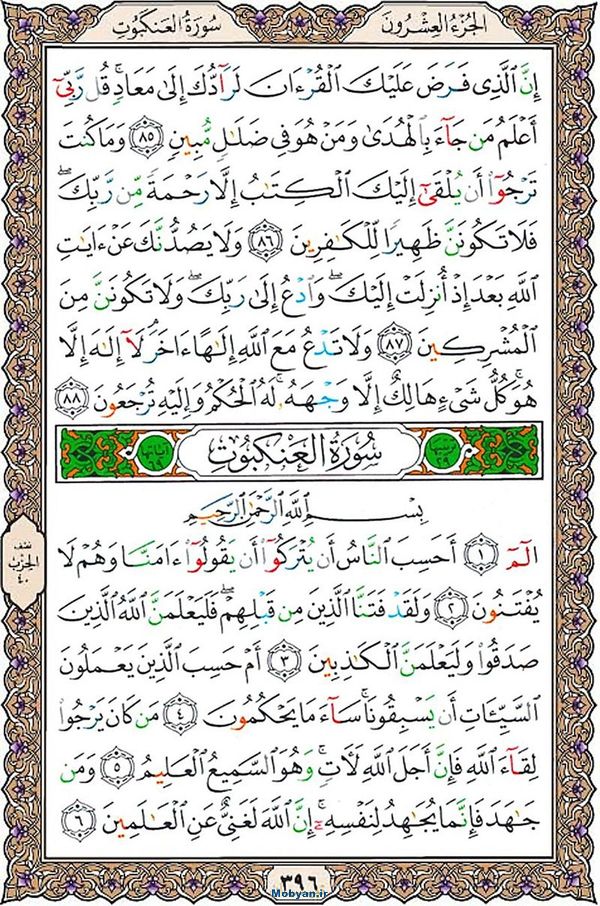 الجزء العشرون
سورة العنكبوت
إِنَّ ٱلَّذِى فَرَضَ عَلَيْكَ ٱلْقُرْءَانَ لَرَآدُّكَ إِلَىٰ مَعَادٍۚ قُل رَّبِّىٓ
أَعْلَمُ مَن جَآءَ بِٱلْهُدَىٰ وَمَنْ هُوَ فِى ضَلَٰلٍ مُّبِينٍ ٨٥ وَمَا كُنتَ
تَرْجُوٓا۟ أَن يُلْقَىٰٓ إِلَيْكَ ٱلْكِتَٰبُ إِلَّا رَحْمَةً مِّن رَّبِّكَۖ
فَلَا تَكُونَنَّ ظَهِيرًا لِّلْكَٰفِرِينَ ٨٦ وَلَا يَصُدُّنَّكَ عَنْ ءَايَٰتِ
ٱللَّهِ بَعْدَ إِذْ أُنزِلَتْ إِلَيْكَۖ وَٱدْعُ إِلَىٰ رَبِّكَۖ وَلَا تَكُونَنَّ مِنَ
ٱلْمُشْرِكِينَ ٨٧ وَلَا تَدْعُ مَعَ ٱللَّهِ إِلَٰهًا ءَاخَرَۘ لَآ إِلَٰهَ إِلَّا
هُوَۚ كُلُّ شَىْءٍ هَالِكٌ إِلَّا وَجْهَهُۥۚ لَهُ ٱلْحُكْمُ وَإِلَيْهِ تُرْجَعُونَ ٨٨
سُورَةُ ٱلْعَنكَبُوتِ
آياتها ٦٩
بِسْمِ ٱللَّهِ ٱلرَّحْمَٰنِ ٱلرَّحِيمِ
الٓمٓ ١ أَحَسِبَ ٱلنَّاسُ أَن يُتْرَكُوٓا۟ أَن يَقُولُوٓا۟ ءَامَنَّا وَهُمْ لَا
يُفْتَنُونَ ٢ وَلَقَدْ فَتَنَّا ٱلَّذِينَ مِن قَبْلِهِمْۖ فَلَيَعْلَمَنَّ ٱللَّهُ ٱلَّذِينَ
صَدَقُوا۟ وَلَيَعْلَمَنَّ ٱلْكَٰذِبِينَ ٣ أَمْ حَسِبَ ٱلَّذِينَ يَعْمَلُونَ
ٱلسَّيِّـَٔاتِ أَن يَسْبِقُونَاۚ سَآءَ مَا يَحْكُمُونَ ٤ مَن كَانَ يَرْجُوا۟
لِقَآءَ ٱللَّهِ فَإِنَّ أَجَلَ ٱللَّهِ لَـَٔاتٍۚ وَهُوَ ٱلسَّمِيعُ ٱلْعَلِيمُ ٥ وَمَن
جَٰهَدَ فَإِنَّمَا يُجَٰهِدُ لِنَفْسِهِۦٓۚ إِنَّ ٱللَّهَ لَغَنِىٌّ عَنِ ٱلْعَٰلَمِينَ ٦
نصف
الحزب
٤٠
٣٩٦
Mobyan.ir